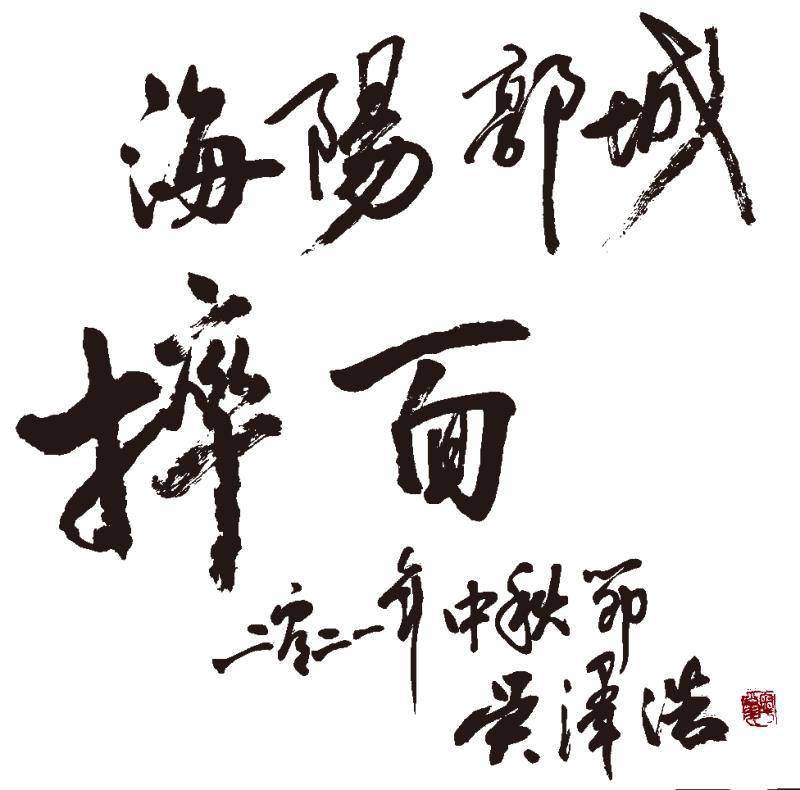 海陽郭城
摔面
二零二一年中秋節
吴澤浩